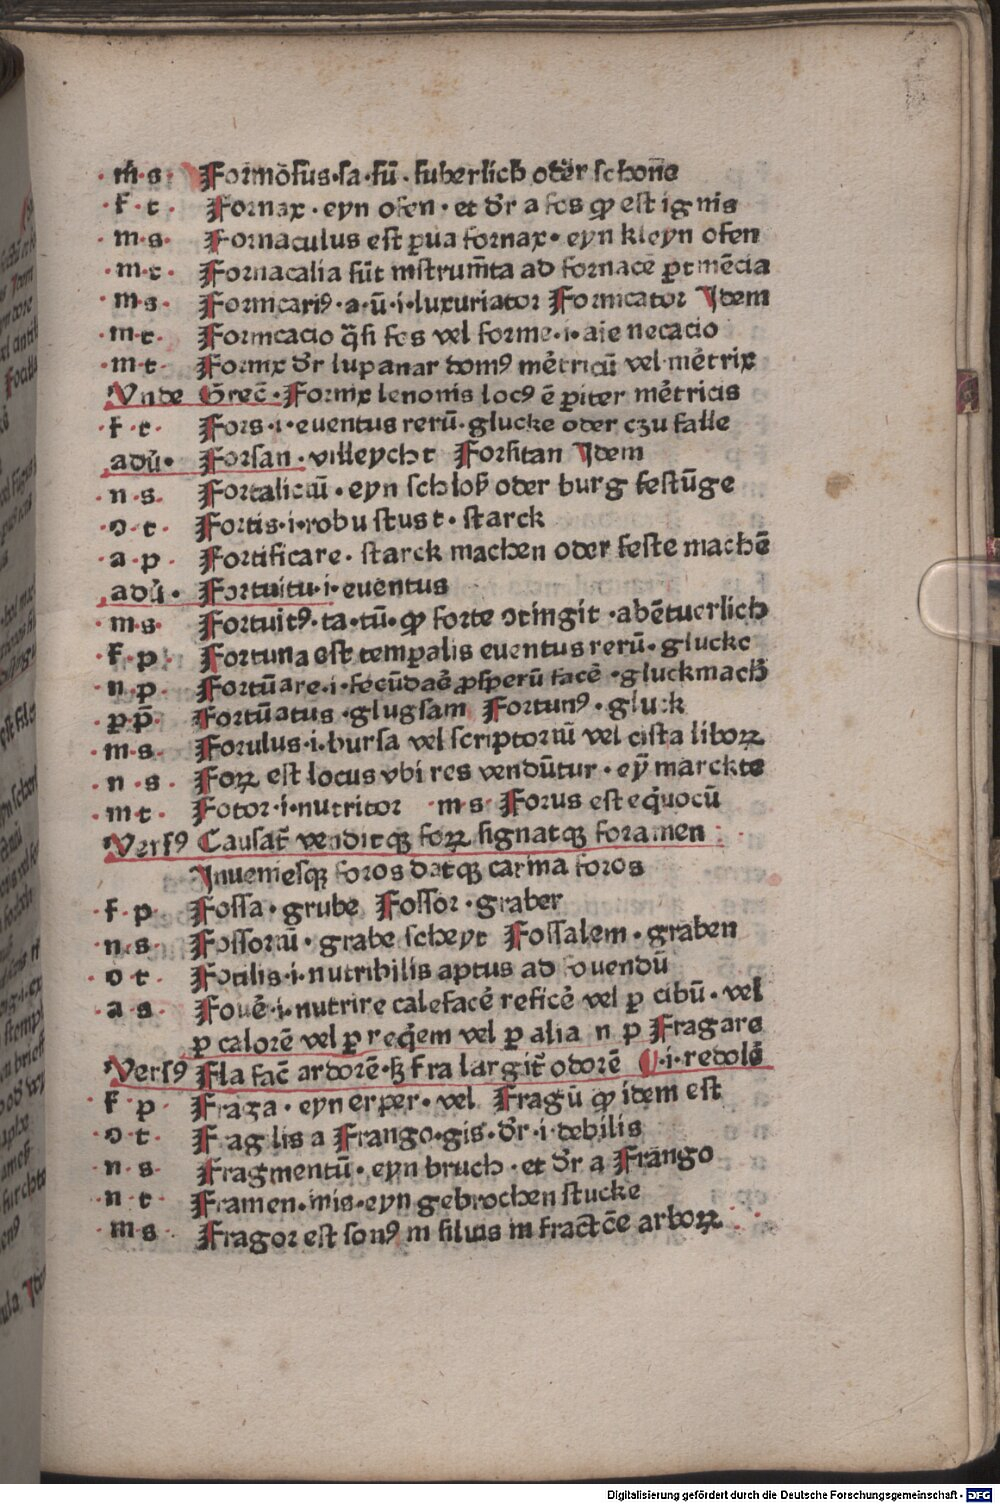 ·m·s· Formõſus·ſa·ſū· ſuberlich oder ſchonne
·f·t· Fornax · eyn ofen · et dr̄ a fos qꝫ eſt ignis
·m·s· Fornaculus eſt ꝑua fornax· eyn kleyn ofen
·m·t· Fornacalia ſūt inſtrum̄ta ad fornacē ꝑtinēcia
·m·s· Fornicariꝰ·a·ū·i·luxuriator Fornicator Idem
·m·t· Fornicacio q̄ſi fos vel forme·i·aīe necacio
·m·t· Fornix dr̄ lupanar domꝰ mētricū vel mētrix
Vnde Grec̄· Fornix lenonis locꝰ ē ꝑiter mētricis
·f·t· Fors·i·euentus rerū·glucke oder czu falle
adū· Forſan·villeycht Forſitan Idem
·n·s· Fortalicium·eyn ſchloß oder burg feſtūge
·o·t· Fortis·i·robuſtus t·ſtarck
·a·p· Fortificare·ſtarck machen oder feſte machē
adū· Fortuitu·i·euentus
·m·s· Fortuitꝰ·ta·tū·qꝫ forte ɔtingit·abētuerlich
·f·p· Fortuna eſt temꝑalis euentus rerū·glucke
·n·p· Fortūare·i·fecūdaē ꝓſperū facē·gluckmach̄
·p·p̄· Fortūatus·glugſam Fortunꝰ·gluck
·m·s· Forulus·i·burſa vel ſcriptoriū vel ciſta liboꝝ
·n·s· Foꝝ eſt locus vbi res vendūtur·eȳ marckte
·m·t· Fotor·i·nutritor ·m·s· Forus eſt eq̄uocū
Verſꝰ Cauſat̄ venditqꝫ foꝝ ſignatqꝫ foramen
Inuenieſqꝫ foros datqꝫ carina foros
·f·p· Foſſa·grube Foſſor·graber
·n·s· Foſſoriū·grabe ſcheyt Foſſalem·graben
·o·t· Fotilis·i·nutribilis aptus ad fouendū
·a·s· Fouē·i·nutrire calefacē reficē vel ꝑ cibū·vel
ꝑ calorē vel ꝑ req̄em vel ꝑ alia n p Fragare
Verſꝰ Fla fac̄ ardorē·ſꝫ fra largit̄ odorē ·i·redolē
·f·p· Fraga·eyn erper·vel Fragū qꝫ idem eſt
·o·t· Fragilis a Frango·gis·dr̄·i·debilis
·n·s· Fragmentū·eyn bruch·et dr̄ a Frango
·n·t· Framen·inis·eyn gebrochen ſtucke
·m·s· Fragor eſt ſonꝰ in ſiluis in fractōe arboꝝ
Digitalisierung gefördert durch die Deutsche Forschungsgemeinschaft - DFG